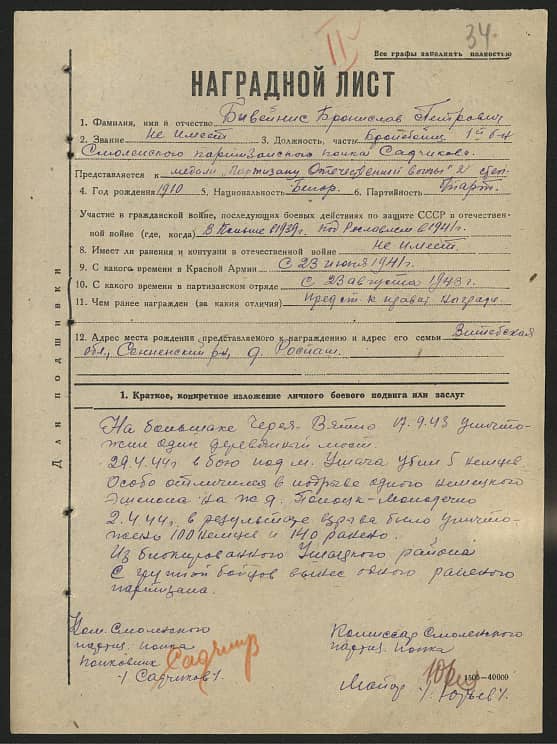 34.
II
Все графы заполнять полностью
НАГРАДНОЙ ЛИСТ
1. Фамилия, имя и отчество Бивейнис Бронислав Петрович
2. Звание не имеет 3. Должность, часть 1й б-н
Смоленского партизанского полка Садчикова.
Представляется к медали "Партизану Отечественной войны" 2 степ.
4. Год рождения 1910 5. Национальность Белор. 6. Партийность
Участие в гражданской войне, последующих боевых действиях по защите СССР и отечествен-
ной войне (где, когда) В Польше в 1939г. под Рославлем в 1941г.
8. Имеет ли ранения и контузии в отечественной войне не имеет
9. С какого времени в Красной Армии С 23 июня 1941г.
10. С какого времени в партизанском отряде С 23 августа 1943г.
11. Чем ранее награжден (за какие отличия) Предст. к правит. награде
12. Адрес места рождения представляемого к награждению и адрес его семьи Витебская
обл., Сенненский р-н, д.
Для подшивки
1. Краткое, конкретное изложение личного боевого подвига или заслуг
На большаке Черея- 17.9.43 уничто-
жил один деревянный мост.
29.4.44г. в бою под м. Ушача убил 5 немцев
Особо отличился в подрыве одного немецкого
эшелона на ж.д. Полоцк-Молодечно
2.4.44г. в результате взрыва было уничто-
жено 100 немцев и 140 ранено.
Из блокированного Ушацкого района
с группой бойцов вынес одного раненого
партизана.
Ком. Смоленского
партиз. полка
полковник Садчиков
/Садчиков/.
Комиссар Смоленского
партиз. полка
Майор /Юрьев/.
1500—40000